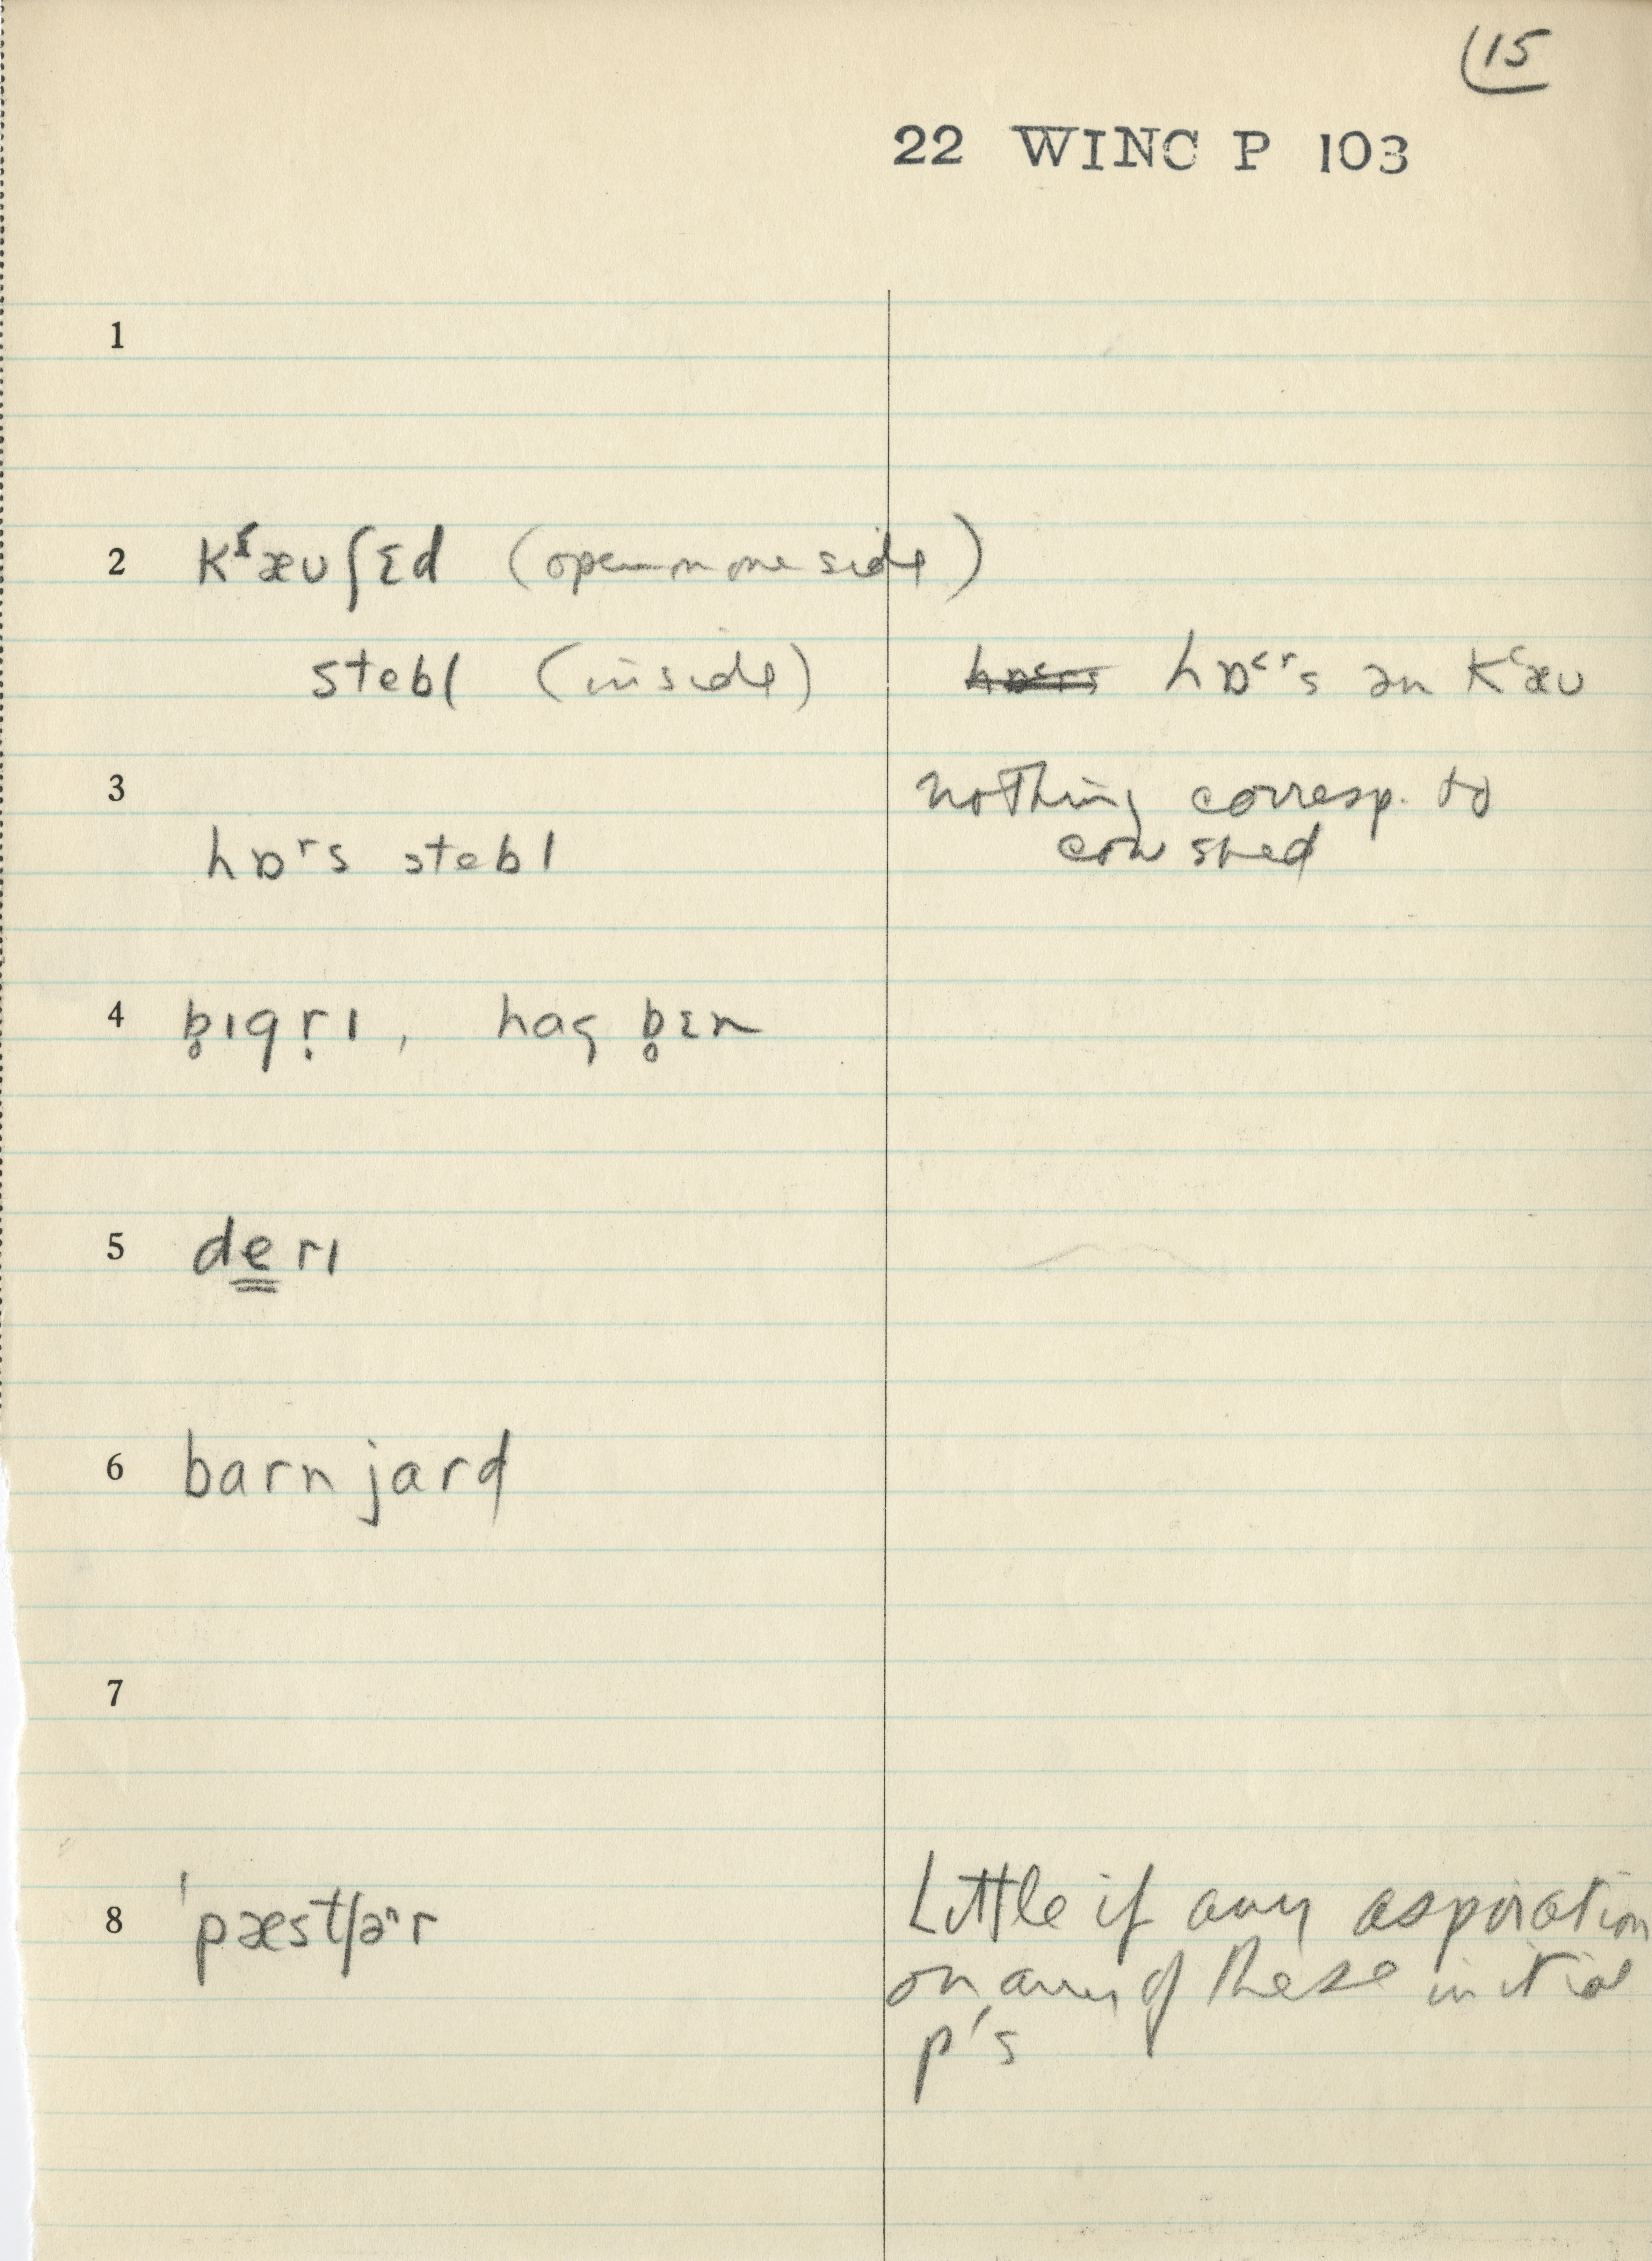 (15
22 WINC P 103
1
2 kʕæʊʃɛd (open on one side)
stebl (inside) hɒ˂ʳs ən kʿæʊ
3 nothing corresp. to
cow shed
hɒʳs stebl
4 b̥ɪqṛɪ, haɡ b̥ɛn
5 de̳rɪ
6 barn jard
7
8 ˈpæstʃəʳr Little if any aspiration
on any of these initial
p's